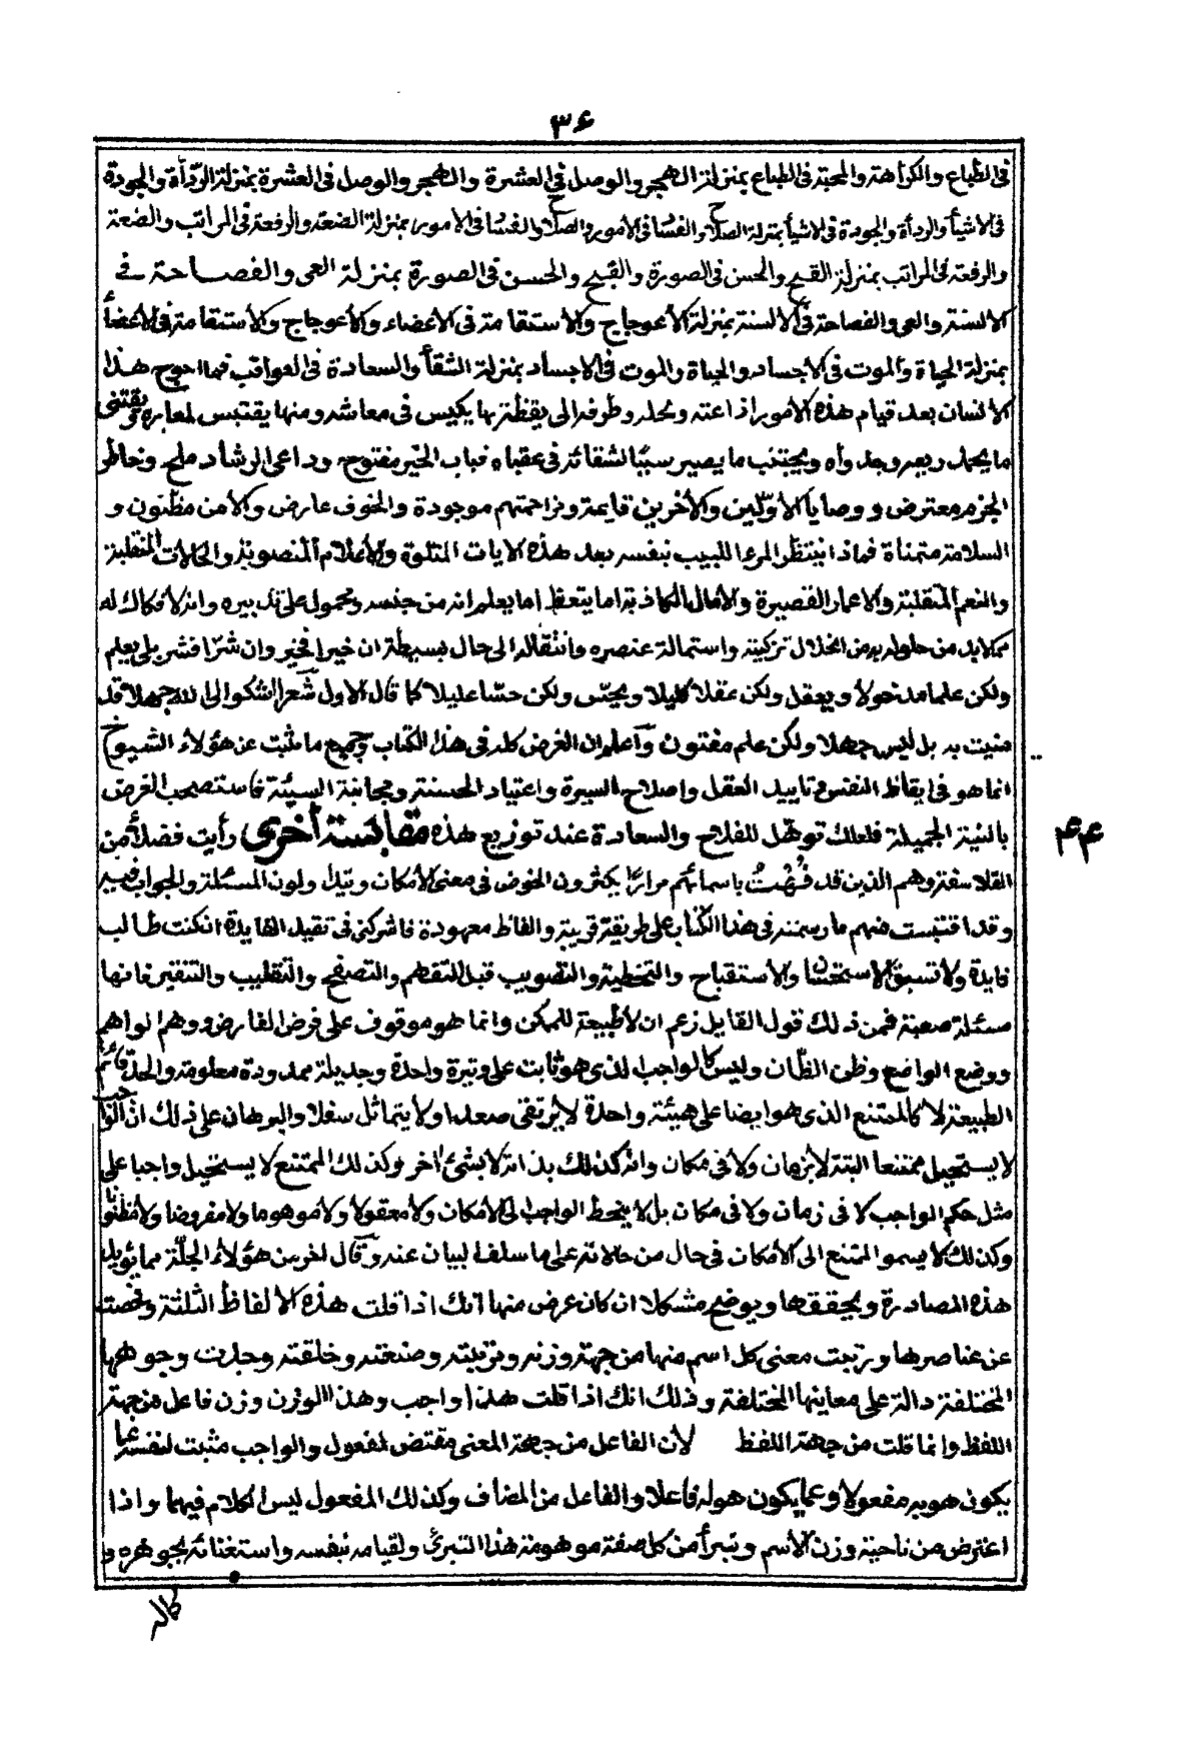 ۳۶
فى الطباع والكراهته والمحبته فى الطباع بمنزلة الهجر والوصل فى العشرة والهجر والوصل فى العشرة بمنزلة الردأة والجودة
فى الاشيأ والردأة والجودة فى الاشيأ بمنزلة الصلاح والفساد فى الأمور والصلاح والفساد فى الامور بمنزلة الضعته والرفعته فى المراتب والضعة
والرفعته فى المراتب بمنزلة القبيح والحسن فى الصورة والقبيح والحسن فى الصورة بمنزلة العى والفصاحة فى
الالسنة والعى والفصاحة فى الألسنة بمنزلة الأعوجاج والاستقامة فى الاعضاء والأعوجاج والأستقامة فى الأعضأ
بمنزلة الحياة والموت فى الأجساد والحياة والموت فى الاجساد بمنزلة الشقأ والسعادة فى العواقب فما احوج هذا
الأنسان بعد قيام هذه الأمور الى يقظة بها يكيس فى معاشه ومنها يقتبس لمعاده ويقتنى
ما يحمد ريعه وجدواه ويجتنب ما يصير سببًا لشقائه فى عقباه فباب الخير مفتوح وداعى الرشاد ملح وخاطر
الحزم معترض ووصايا الأولين والأخرين قايمة ومزاحمتهم موجودة والخوف عارض والأمن مظنون و
السلامة متمناة فماذا ينتظر المرء اللبيب بنفسه بعد هذه الايات المتلوة والأعلام المنصوبة والحالات المنقلبة
والنعم المتقلبة والاعمار القصيرة والأمال الكاذبة اما يتعظ اما يعلم انه من جنسه ومحمول على تدبيره وانه لأفكاك له
مما لابد من حلوله به من انحلال تركيبه واستحالة عنصره وانتقاله الى حال بسيطة ان خيرا فخير وان شرّا فشر بلى يعلم
ولكن علما مدخولا ويعقل ولكن عقلا كليلا ويحسّ ولكن حسّا عليلا كما قال الاول شعر اشكوا الى الله جهلا قد
منيت به بل ليس جهلا ولكن علم مفتون وأعلم ان الغرض كله فى هذا الكتاب وجميع ما ثبت عن هؤلاء الشيوخ
انما هو فى ايقاظ النفس وتاييد العقل واصلاح السيرة واعتياد الحسنة ومجانبة السيئة فاستصحب الغرض
بالنية الجميلة فلعلك توهّل للفلاح والسعادة عند توزيع هذه مقابسة أخرى رأيت فضلأ من
۴۴
الفلاسفة وهم الذين قد نوّهت باسمائهم مرارًا يكثرون الخوض فى معنى الأمكان ويتداولون المسئلة والجواب فيه
وقد اقتبست منهم ما رسمته فى هذا الكتاب على طريقة قريبة والفاظ معهودة فاشركنى فى تقيد الفايدة ان كنت طالب
فايدة ولا تسبق الاستحسان والاستقباح والتخطية والتصويب قبل التفهم والتصفح والتقليب والتنقير فانها
مسئلة صعبة فمن ذلك قول القايل زعم ان لأطبيعة للممكن وانما هو موقوف على فرض الفارض ووهم الواهم
ووضع الواضع وظن الظّان وليس كالواجب الذى هو ثابت على وتيرة واحدة وجديلة ممدودة معلومة والحد قائم
الطبيعة لا كالممتنع الذى هو ايضا على هيئة واحدة لا يرتقى صعدا ولا يتماثل سفلا والبرهان على ذلك ان الواجب
لا يستحيل ممتنعا البتة لا بزمان ولا فى مكان وانه كذلك بذاته لا بشئ اخر وكذلك الممتنع لا يستحيل واجبا على
مثل حكم الواجب لا فى زمان ولا فى مكان بل لا ينحط الواجب الى الأمكان ولا معقولا ولا موهوما ولا مفروضا ولا مظنونا
وكذلك لا يسموا الممتنع الى الأمكان فى حال من حالاته على ما سلف البيان عنه وقال اخر من هؤلأء الجلّة مما يؤيد
هذه المصادرة ويحققها ويوضح مشكلا ان كان عرض منها انك اذا قلت هذه الالفاظ الثلثة وفحصت
عن عناصرها ورتبت معنى كل اسم منها من جهة وزنه وترتيبه وصنعته وخلقته وجدت وجوهها
المختلفة دالة على معاينها المختلفة وذلك انك اذا قلت هذا واجب وهذا الوزن وزن فاعل من جهة
اللفظ وانما قلت من جهة اللفظ لأن الفاعل من جهة المعنى مقتض لمفعول والواجب مثبت لنفسه عما
يكون هو به مفعولا وعما يكون هو له فاعلا والفاعل من المضاف وكذلك المفعول ليس الكلام فيهما واذا
اعترض من ناحية وزن الاسم وتبرأ من كل صفة موهومة هذا التبرئ ولقيامه بنفسه واستغنائه بجوهره و
كماله